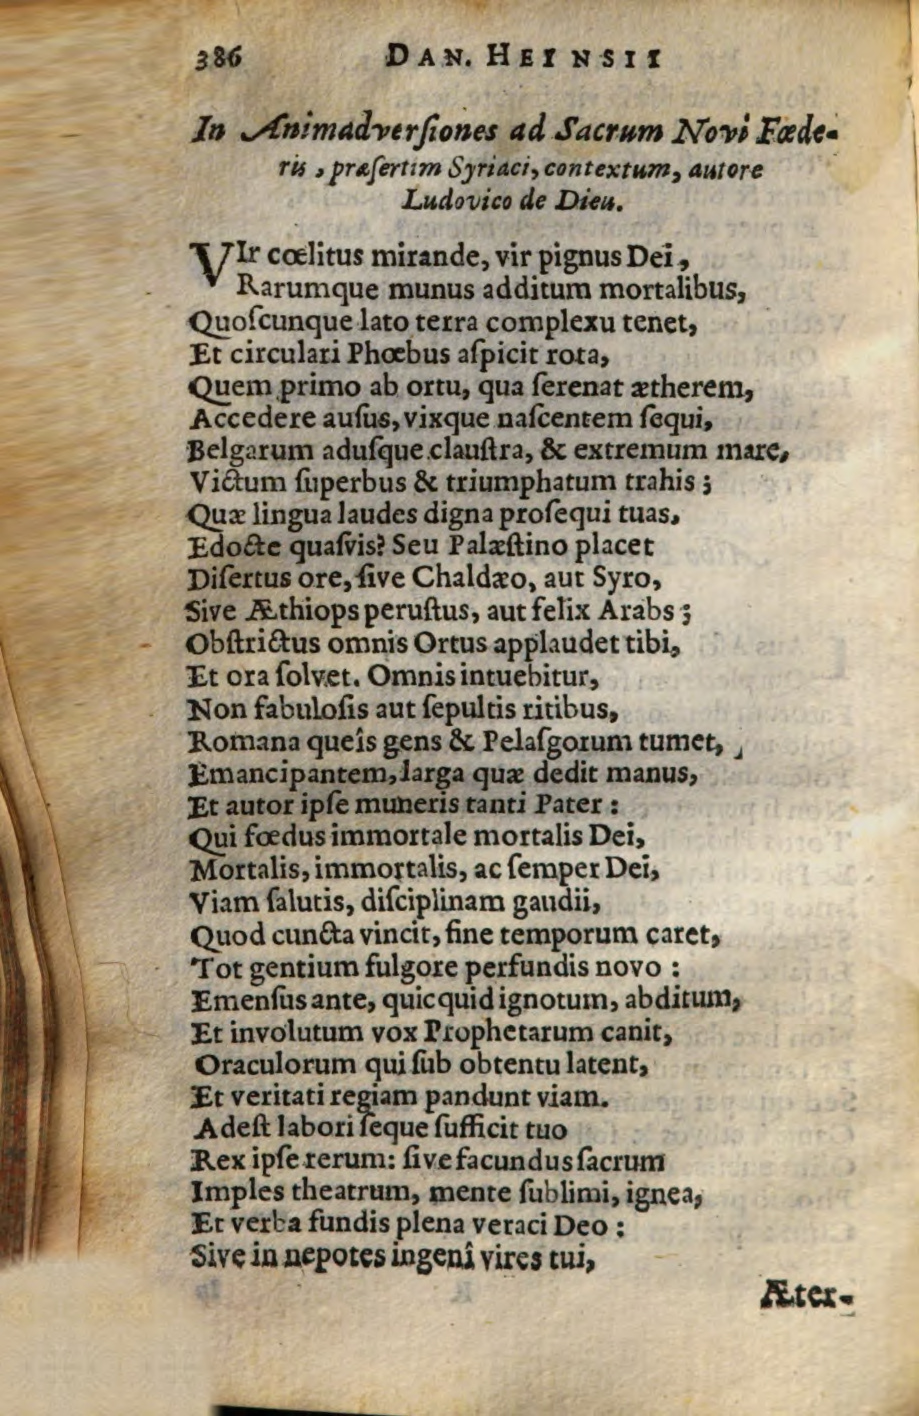 386 DAN. HEINSII
In Animadverſiones ad Sacrum Novi Fœde-
ris, præſertim Syriaci, contextum, autore
Ludovico de Dieu.
VIr cœlitus mirande, vir pignus Dei,
Rarumque munus additum mortalibus,
Quoſcunque lato terra complexu tenet,
Et circulari Phœbus aſpicit rota,
Quem primo ab ortu, qua ſerenat ætherem,
Accedere auſus, vixque naſcentem ſequi,
Belgarum aduſque clauſtra, & extremum mare,
Victum ſuperbus & triumphatum trahis;
Quæ lingua laudes digna proſequi tuas,
Edocte quaſvis? Seu Palæſtino placet
Diſertus ore, ſive Chaldæo, aut Syro,
Sive Æthiops peruſtus, aut felix Arabs;
Obſtrictus omnis Ortus applaudet tibi,
Et ora ſolvet. Omnis intuebitur,
Non fabuloſis aut ſepultis ritibus,
Romana queîs gens & Pelaſgorum tumet,
Emancipantem, larga quæ dedit manus,
Et autor ipſe muneris tanti Pater:
Qui fœdus immortale mortalis Dei,
Mortalis, immortalis, ac ſemper Dei,
Viam ſalutis, diſciplinam gaudii,
Quod cuncta vincit, fine temporum caret,
Tot gentium fulgore perfundis novo:
Emenſus ante, quicquid ignotum, abditum,
Et involutum vox Prophetarum canit,
Oraculorum qui ſub obtentu latent,
Et veritati regiam pandunt viam.
Adeſt labori ſeque ſufficit tuo
Rex ipſe rerum: ſive facundus ſacrum
Imples theatrum, mente ſublimi, ignea,
Et verba fundis plena veraci Deo:
Sive in nepotes ingenî vires tui,
Æter-